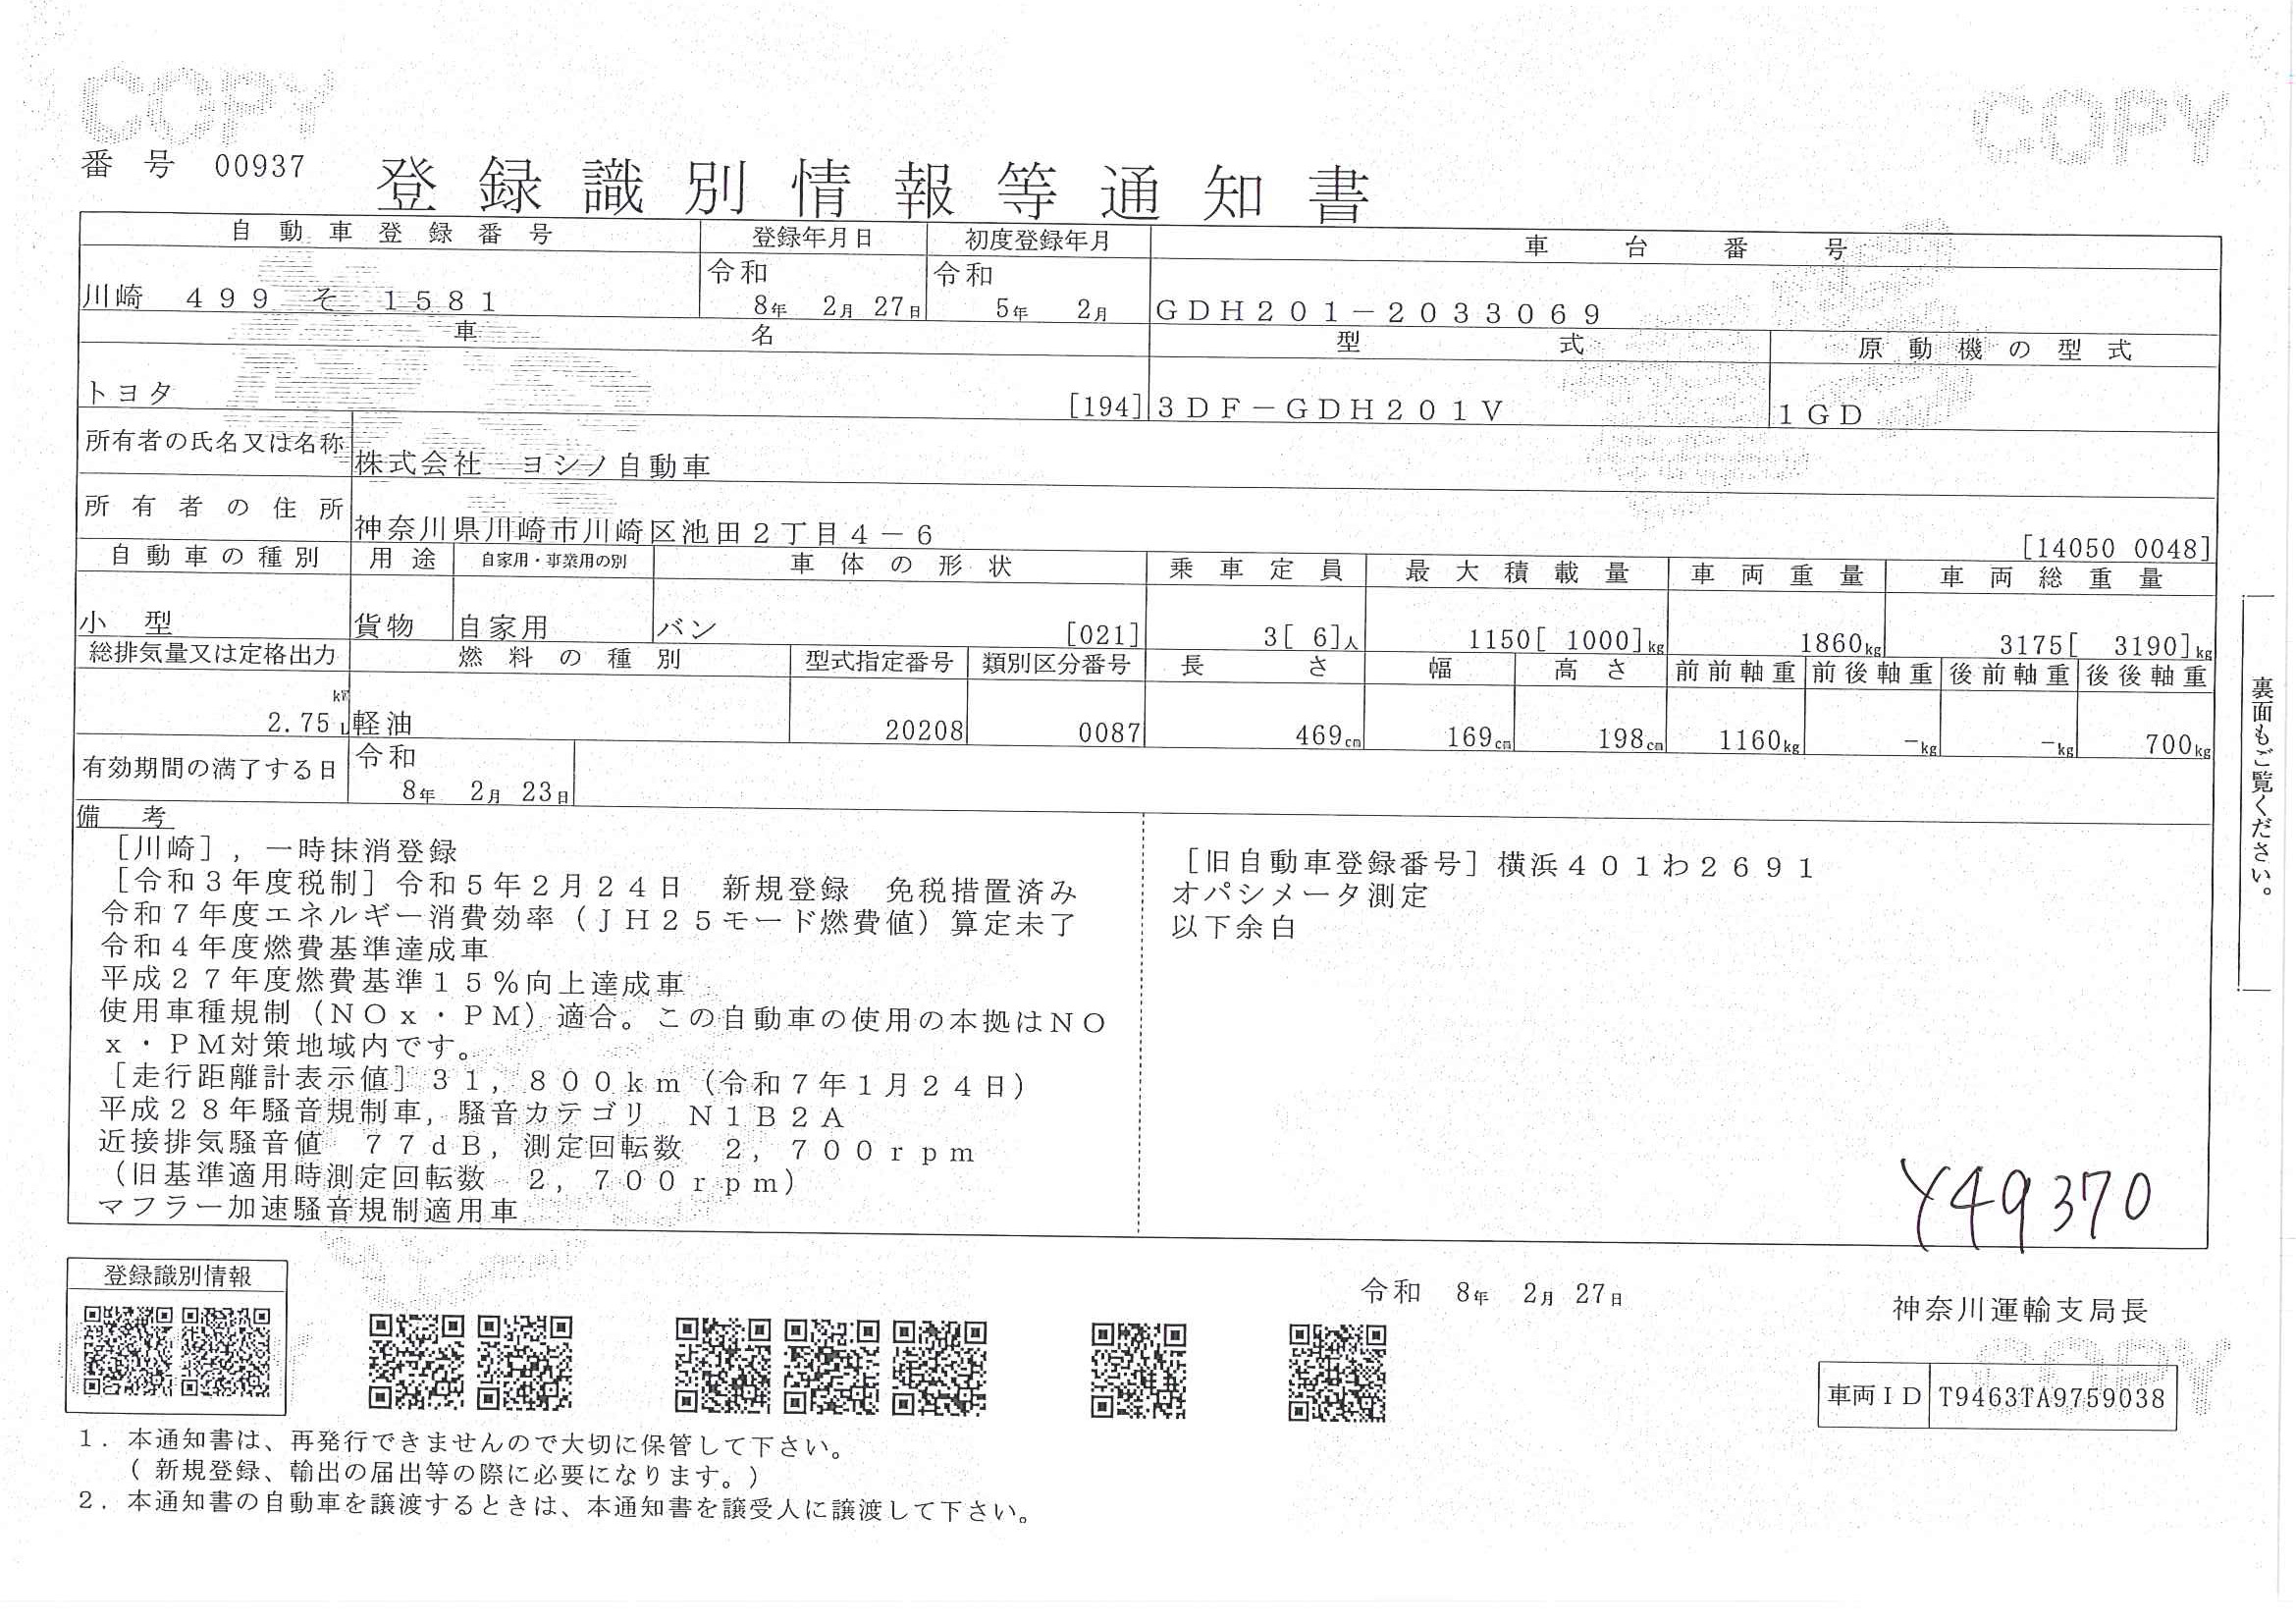 COPY
COPY
番 号 00937
登録識別情報等通知書
自動車登録番号 登録年月日 初度登録年月 車台番号
川崎 499 そ 1581 令和 8年 2月 27日 令和 5年 2月 GDH201-2033069
車名 型式 原動機の型式
トヨタ [194] 3DF-GDH201V 1GD
所有者の氏名又は名称 株式会社 ヨシノ自動車
所有者の住所 神奈川県川崎市川崎区池田2丁目4-6 [14050 0048]
自動車の種別 用途 自家用・事業用の別 車体の形状 乗車定員 最大積載量 車両重量 車両総重量
小型 貨物 自家用 バン [021] 3[ 6]人 1150[ 1000]kg 1860kg 3175[ 3190]kg
総排気量又は定格出力 燃料の種別 型式指定番号 類別区分番号 長さ 幅 高さ 前前軸重 前後軸重 後前軸重 後後軸重
kW 2.75 L 軽油 20208 0087 469cm 169cm 198cm 1160kg -kg -kg 700kg
有効期間の満了する日 令和 8年 2月 23日
備考
[川崎],一時抹消登録
[令和3年度税制]令和5年2月24日 新規登録 免税措置済み
令和7年度エネルギー消費効率(JH25モード燃費値)算定未了
令和4年度燃費基準達成車
平成27年度燃費基準15%向上達成車
使用車種規制(NOx・PM)適合。この自動車の使用の本拠はNO
x・PM対策地域内です。
[走行距離計表示値]31,800km(令和7年1月24日)
平成28年騒音規制車,騒音カテゴリ N1B2A
近接排気騒音値 77dB,測定回転数 2,700rpm
(旧基準適用時測定回転数 2,700rpm)
マフラー加速騒音規制適用車
[旧自動車登録番号]横浜401わ2691
オパシメータ測定
以下余白
Y49370
裏面もご覧ください。
登録識別情報
令和 8年 2月 27日
神奈川運輸支局長
COPY
車両ID T9463TA9759038
1.本通知書は、再発行できませんので大切に保管して下さい。
(新規登録、輸出の届出等の際に必要になります。)
2.本通知書の自動車を譲渡するときは、本通知書を譲受人に譲渡して下さい。